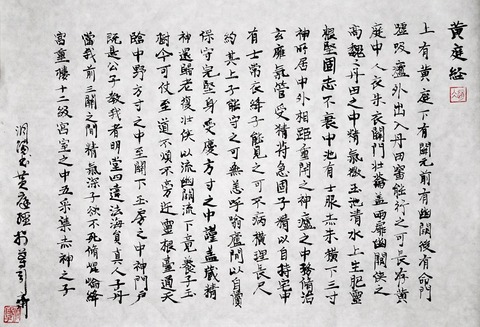 黄庭经
上有黄庭下有關元前有幽闕後有命門
嘘吸廬外出入丹田審能行之可長存黄
庭中人衣朱衣關門壯籥蓋兩扉幽闕侠之
高魏魏丹田之中精氣微玉池清水上生肥靈
根堅固志不衰中池有士服赤朱横下三寸
神所居中外相距重閉之神廬之中務脩治
玄廱氣管受精符急固子精以自持宅中
有士常衣絳子能見之可不病横理長尺
約其上子能守之可無恙呼噏廬間以自償
保守完堅身受慶方寸之中謹蓋藏精
神還歸老復壯侠以流幽闕流下竟養子玉
樹令可仗至道不煩不旁迕靈臺通天
臨中野方寸之中至關下玉房之中神門戶
既是公子教我者明堂四達法海員真人子丹
當我前三關之間精氣深子欲不死脩崑崙絳
宫重樓十二級宫室之中五采集赤神之子
书黄庭經於